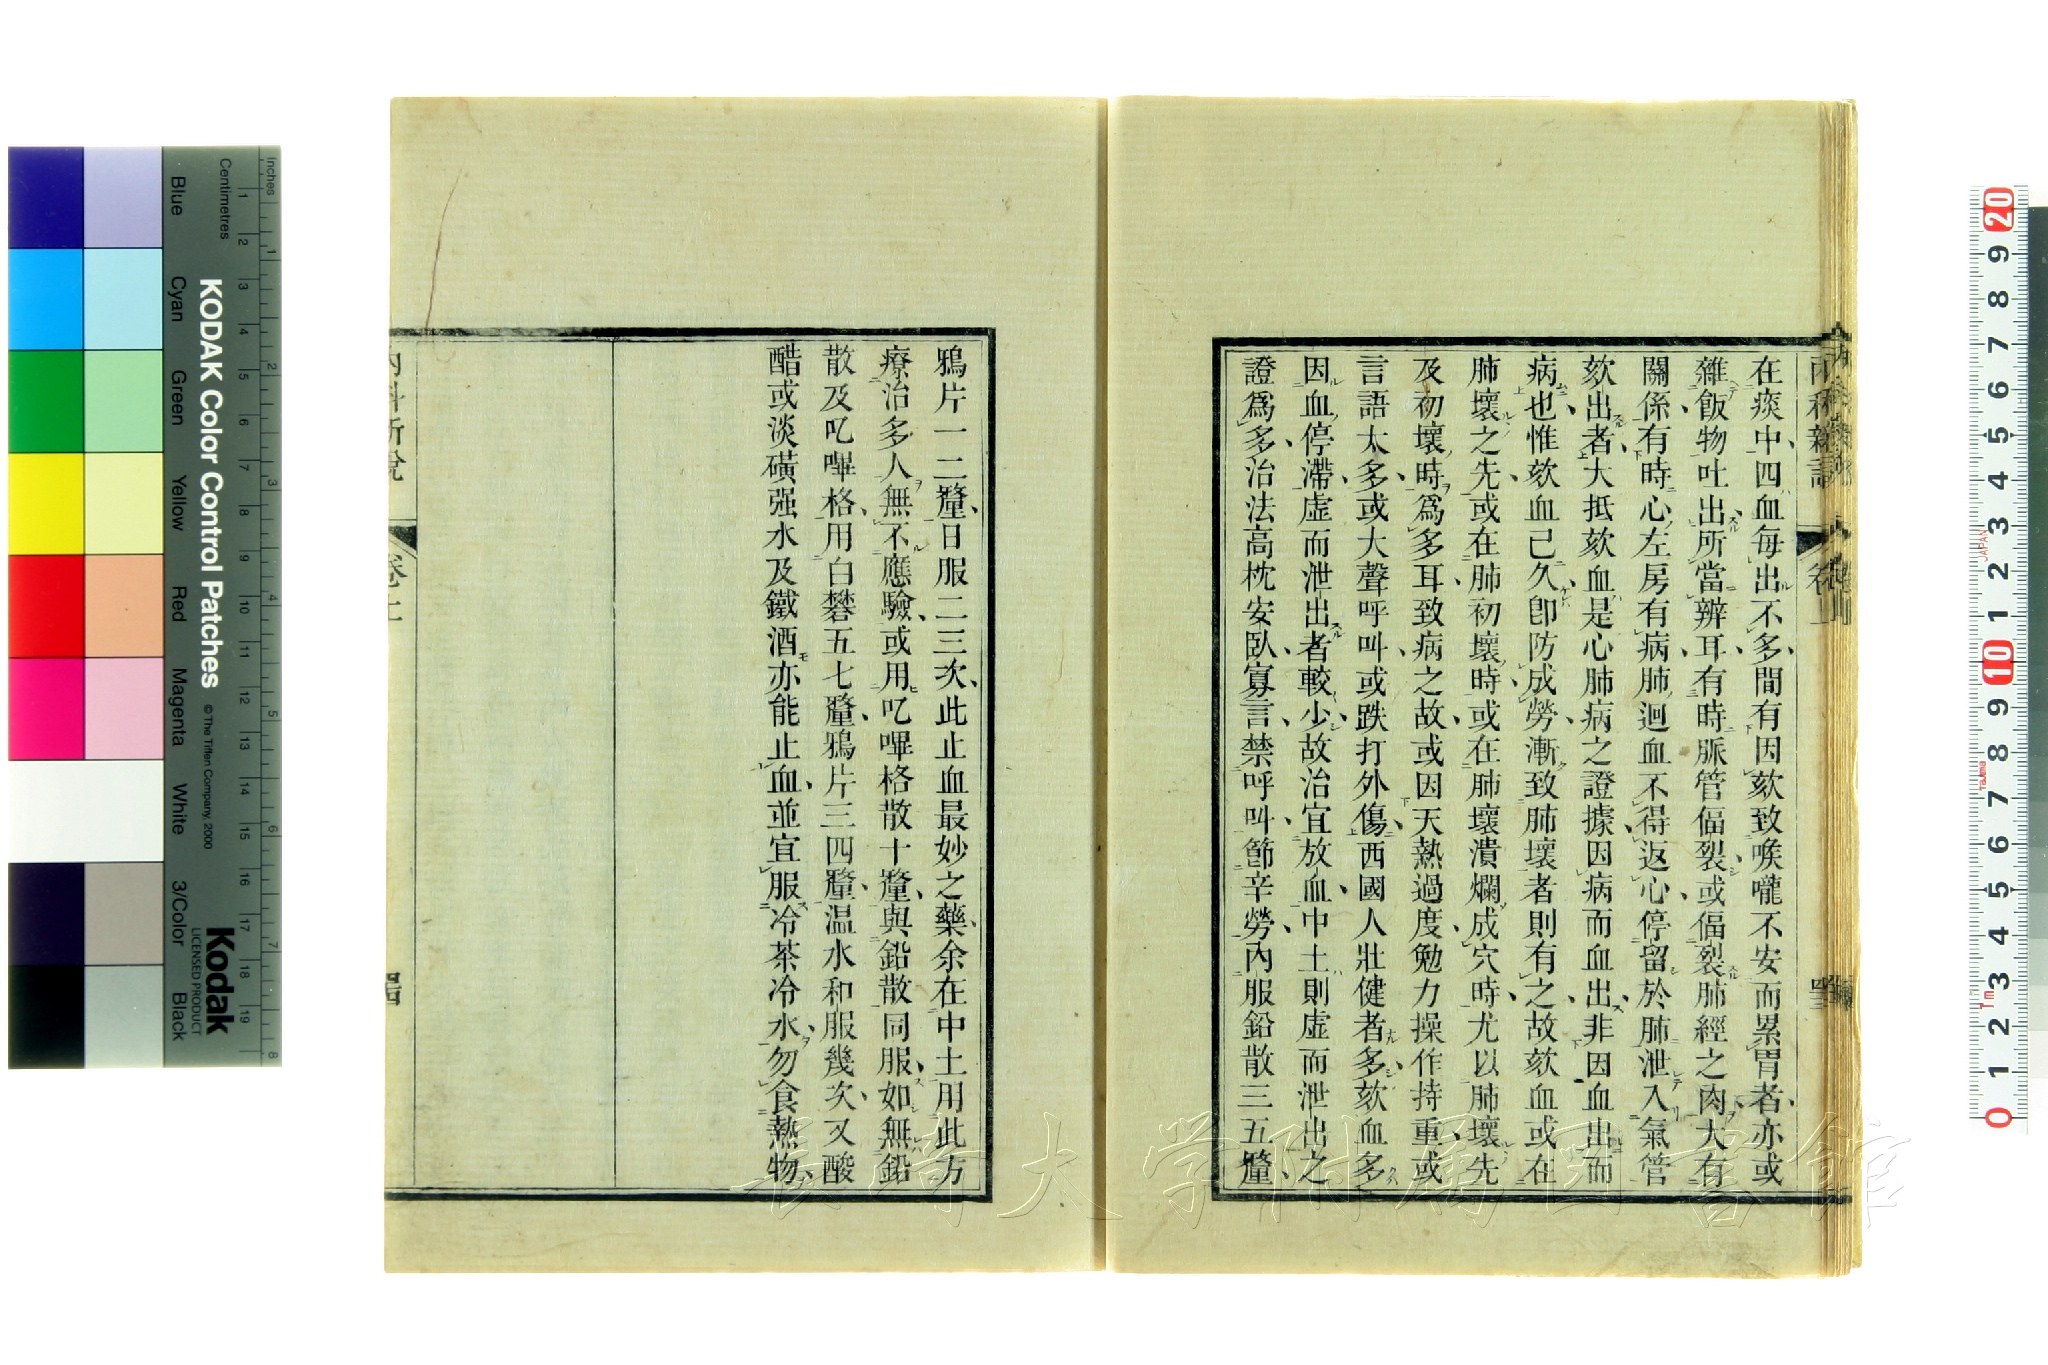 在痰中四血每出不多間有因欬致喉嚨不安而累胃者亦或
雜飯物吐出所當辨耳有時脈管偪裂或偪裂肺經之肉大有
關係有時心左房有病肺迴血不得返心停留於肺泄入氣管
欬出者大抵欬血是心肺病之證據因病而血出非因血出而
病也惟欬血已久卽防成勞漸致肺壞者則有之故欬血或在
肺壞之先或在肺初壞時或在肺壞潰爛成穴時尤以肺壞先
及初壞時爲多耳致病之故或因天熱過度勉力操作持重或
言語太多或大聲呼叫或跌打外傷西國人壯健者多欬血多
因血停滯虛而泄出者較少故治宜放血中土則虛而泄出之
證爲多治法高枕安臥寡言禁呼叫節辛勞內服鉛散三五釐
鴉片一二釐日服二三次此止血最妙之藥余在中土用此方
療治多人無不應驗或用叱嗶格散十釐與鉛散同服如無鉛
散及叱嗶格用白礬五七釐鴉片三四釐温水和服幾次又酸
醋或淡磺强水及鐵酒亦能止血並宜服冷茶冷水勿食熱物
內科新說
卷上
四
KODAK Color Control Patches
© The Tiffen Company, 2000
Kodak
LICENSED PRODUCT
Inches
Centimetres
Blue
Cyan
Green
Yellow
Red
Magenta
White
3/Color
Black
長崎大学附属図書館